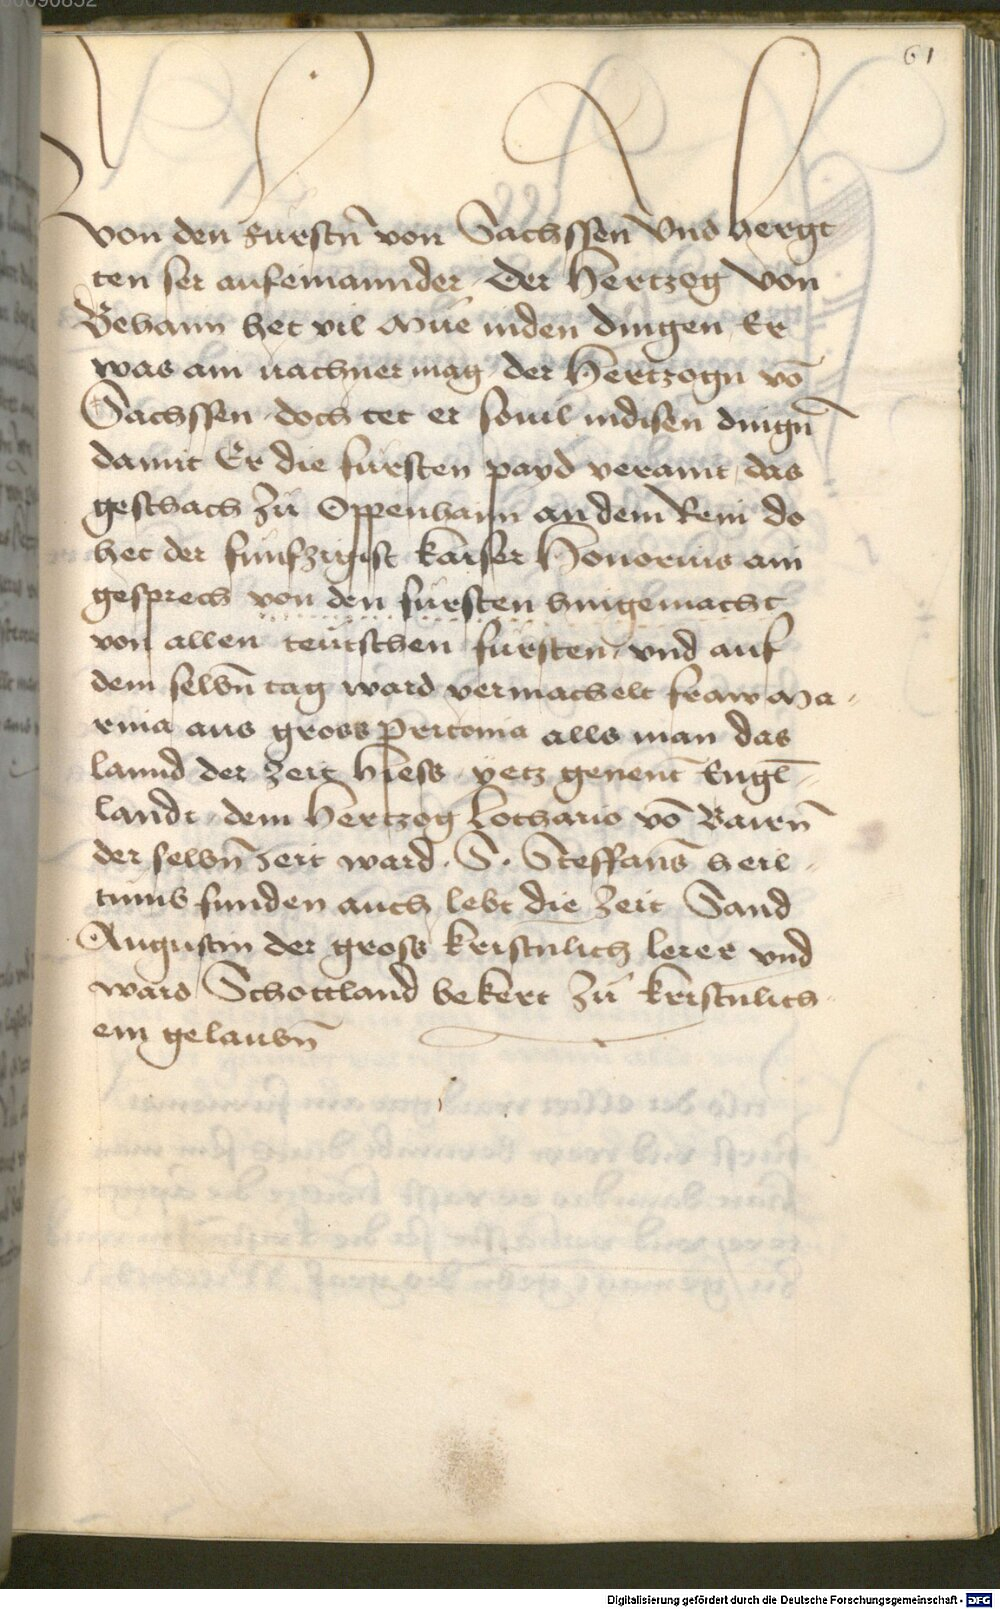 61
von den fursten̄ von Sachssen Vnd hergt
ten ser aufeinannder Der Hertzog von
Behann het vil Mue inden dingen Er
was ain nachner mag der Hertzogn vō
Sachssen doch tet er souil indisen dingn̄
damit Er die fursten payd veraint das
geschach zu Oppenhann an dem Rein do
het der funfzigist kaiser Honorius ain
gesprech von den fursten hingemacht
von allen teutschen fursten vnd auf
dem selbn̄ tag ward vermachelt fraw Ma-
rina aus gross Pritonia alls man das
lannd der zeit hiess yetz genent Engl-
landt dem Hertzog Lothario vō Bairn̄
der selbn̄ zeit ward . S . Steffans heil-
tums funden auch lebt die zeit Sand
Augustin der gross kristnlich lerer vnd
ward Schottland bekert zu kristnlich-
em gelaubn̄
Digitalisierung gefördert durch die Deutsche Forschungsgemeinschaft - DFG